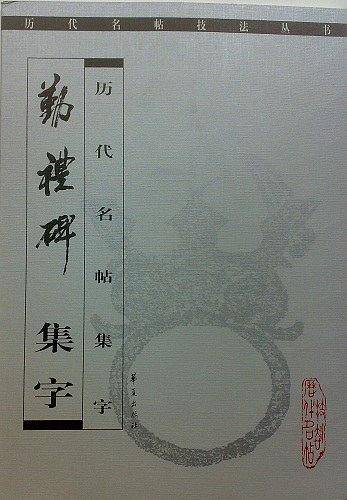 历代名帖技法丛书
勤禮碑
集字
历代名帖集字
华夏出版社